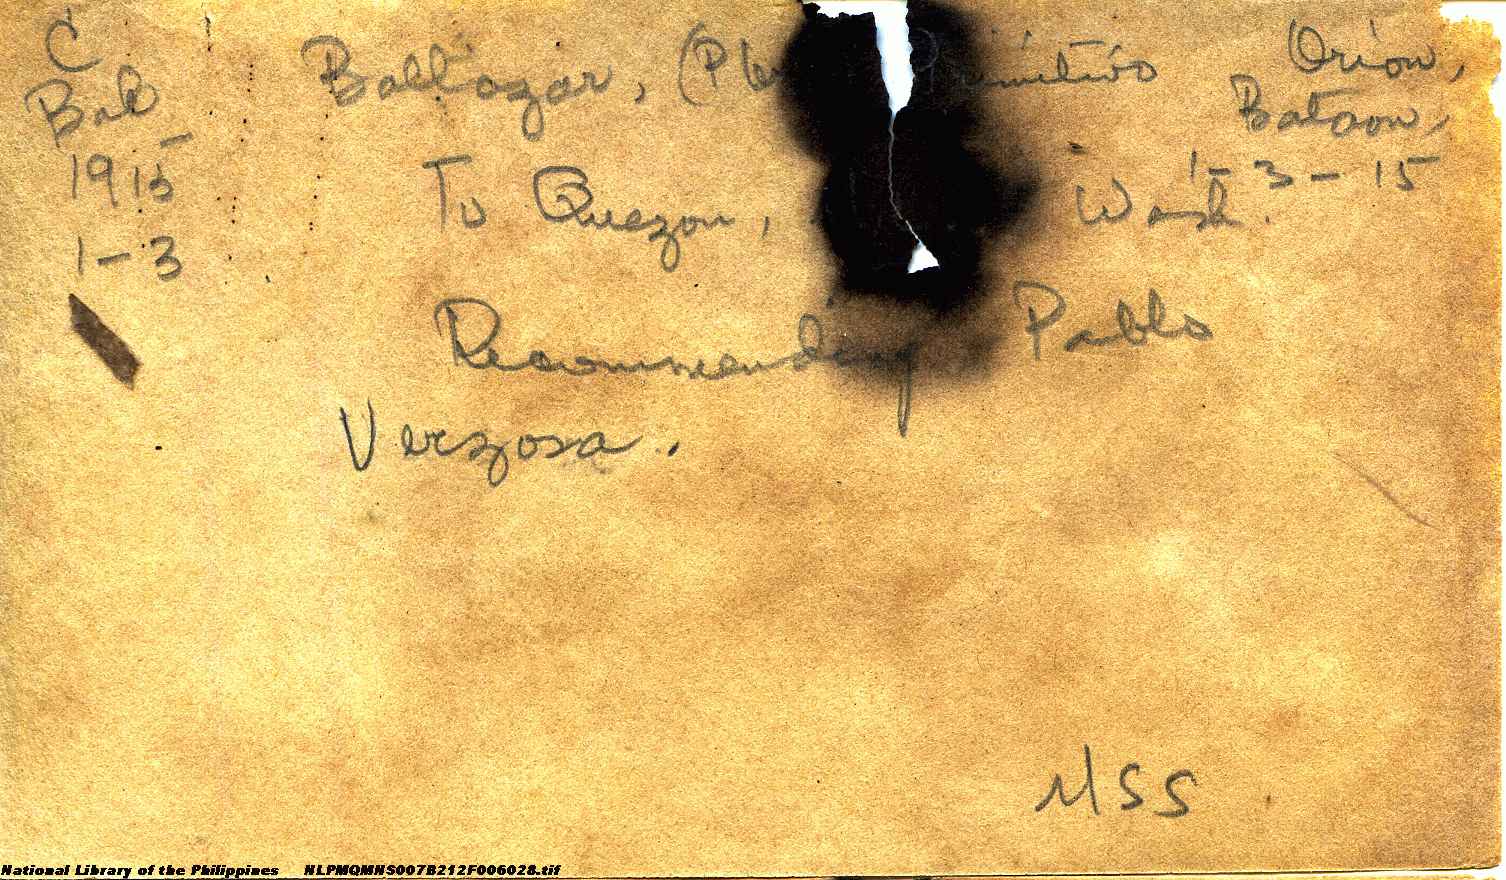 C
Bal
1915
1-3
Baltazar, Primitivo Orion,
Bataan,
1-3-15
To Quezon, Wash.
Recommending Pablo
Verzosa.
MSS
National Library of the Philippines NLPMQMNS007B212F006028.tif